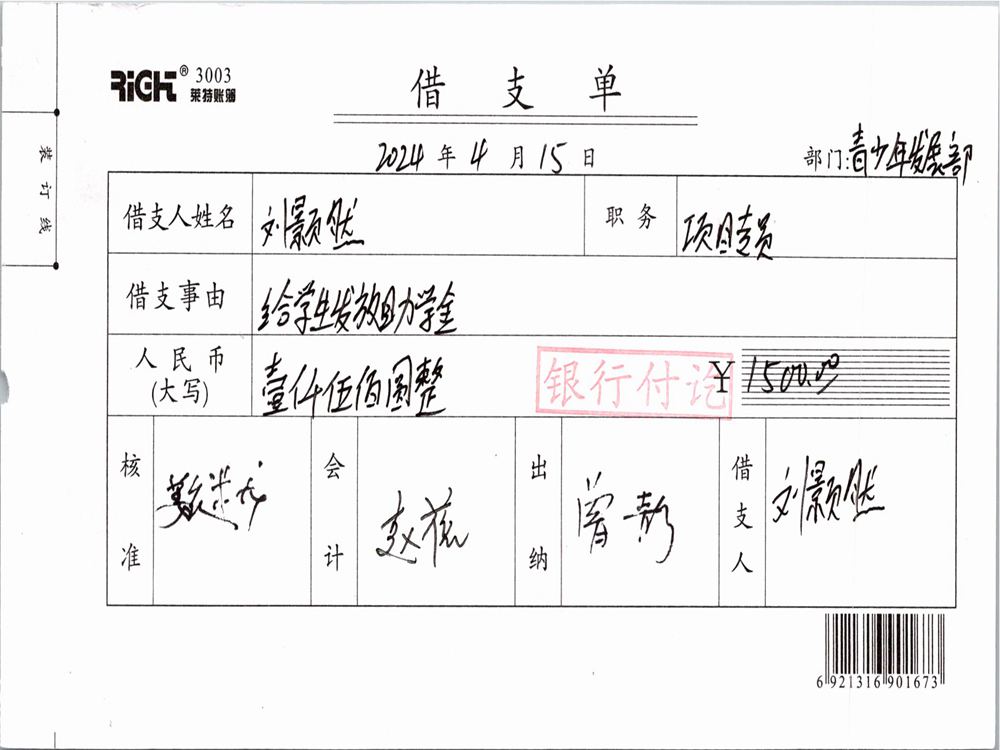 RiGHT® 3003
莱特账簿
借支单
2024年4月15日
部门:青少年发展部
装订线
借支人姓名 刘颢然 职务 项目专员
借支事由 给学生发放助学金
人民币(大写) 壹仟伍佰圆整 ¥1500.00
银行付讫
核准 会计 赵 出纳 曾 借支人 刘颢然
6 921316 901673